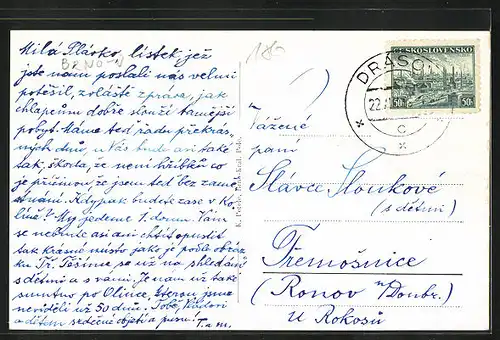 Milá Slávko, lístek jež
jste nám poslali nás velmi
potěšil, zvláště zpráva, jak
chlapcům dobře slouží tamější
pobyt. Máme teď řadu překrás-
ných dnů, u Vás bude asi také
tak, škoda, že není hříbků co
je příčinou, že jsem teď bez zamě
stnání. Kdypak budete zase v Ko-
líně? My jedeme 1. domů. Vám
se nebude asi ani chtít opustit
tak krásné místo jako je podle obráz-
ku Tř. Těšíme se už na shledání
s dětmi a s vámi. Je nám už také
smutno po Olince, kterou jsme
neviděli už 50 dnů. Tobě,
a dětem srdečné objetí a pusu! T. a m.
BRNO
180
ČESKOSLOVENSKO
50h 50h
DRASO
22.
C
Vážená
paní
Slávce Sloukové
(s dětmi)
Třemošnice
(Ronov n/Doubr.)
u Rokosů